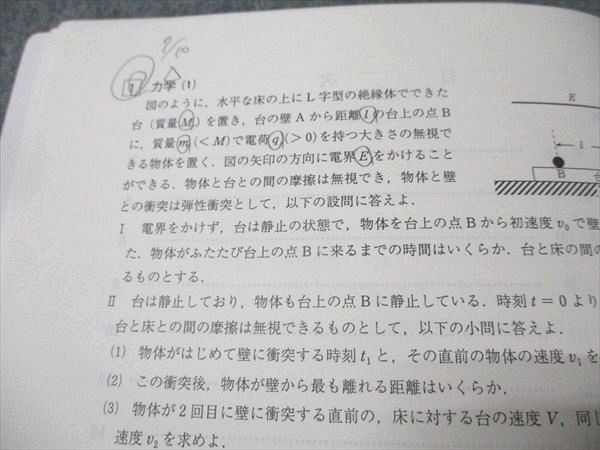 9/10
1 力学(1)
図のように，水平な床の上にL字型の絶縁体でできた
台（質量M）を置き，台の壁Aから距離lの台上の点B
に，質量m（<M）で電荷q（>0）を持つ大きさの無視で
きる物体を置く．図の矢印の方向に電界Eをかけること
ができる．物体と台との間の摩擦は無視でき，物体と壁
との衝突は弾性衝突として，以下の設問に答えよ．
E
l
B
台
I 電界をかけず，台は静止の状態で，物体を台上の点Bから初速度v₀で壁
た．物体がふたたび台上の点Bに来るまでの時間はいくらか．台と床の間の
るものとする．
II 台は静止しており，物体も台上の点Bに静止している．時刻t＝0より
台と床との間の摩擦は無視できるものとして，以下の小問に答えよ．
(1) 物体がはじめて壁に衝突する時刻t₁と，その直前の物体の速度v₁を
(2) この衝突後，物体が壁から最も離れる距離はいくらか．
(3) 物体が2回目に壁に衝突する直前の，床に対する台の速度V，同じ
速度v₂を求めよ．